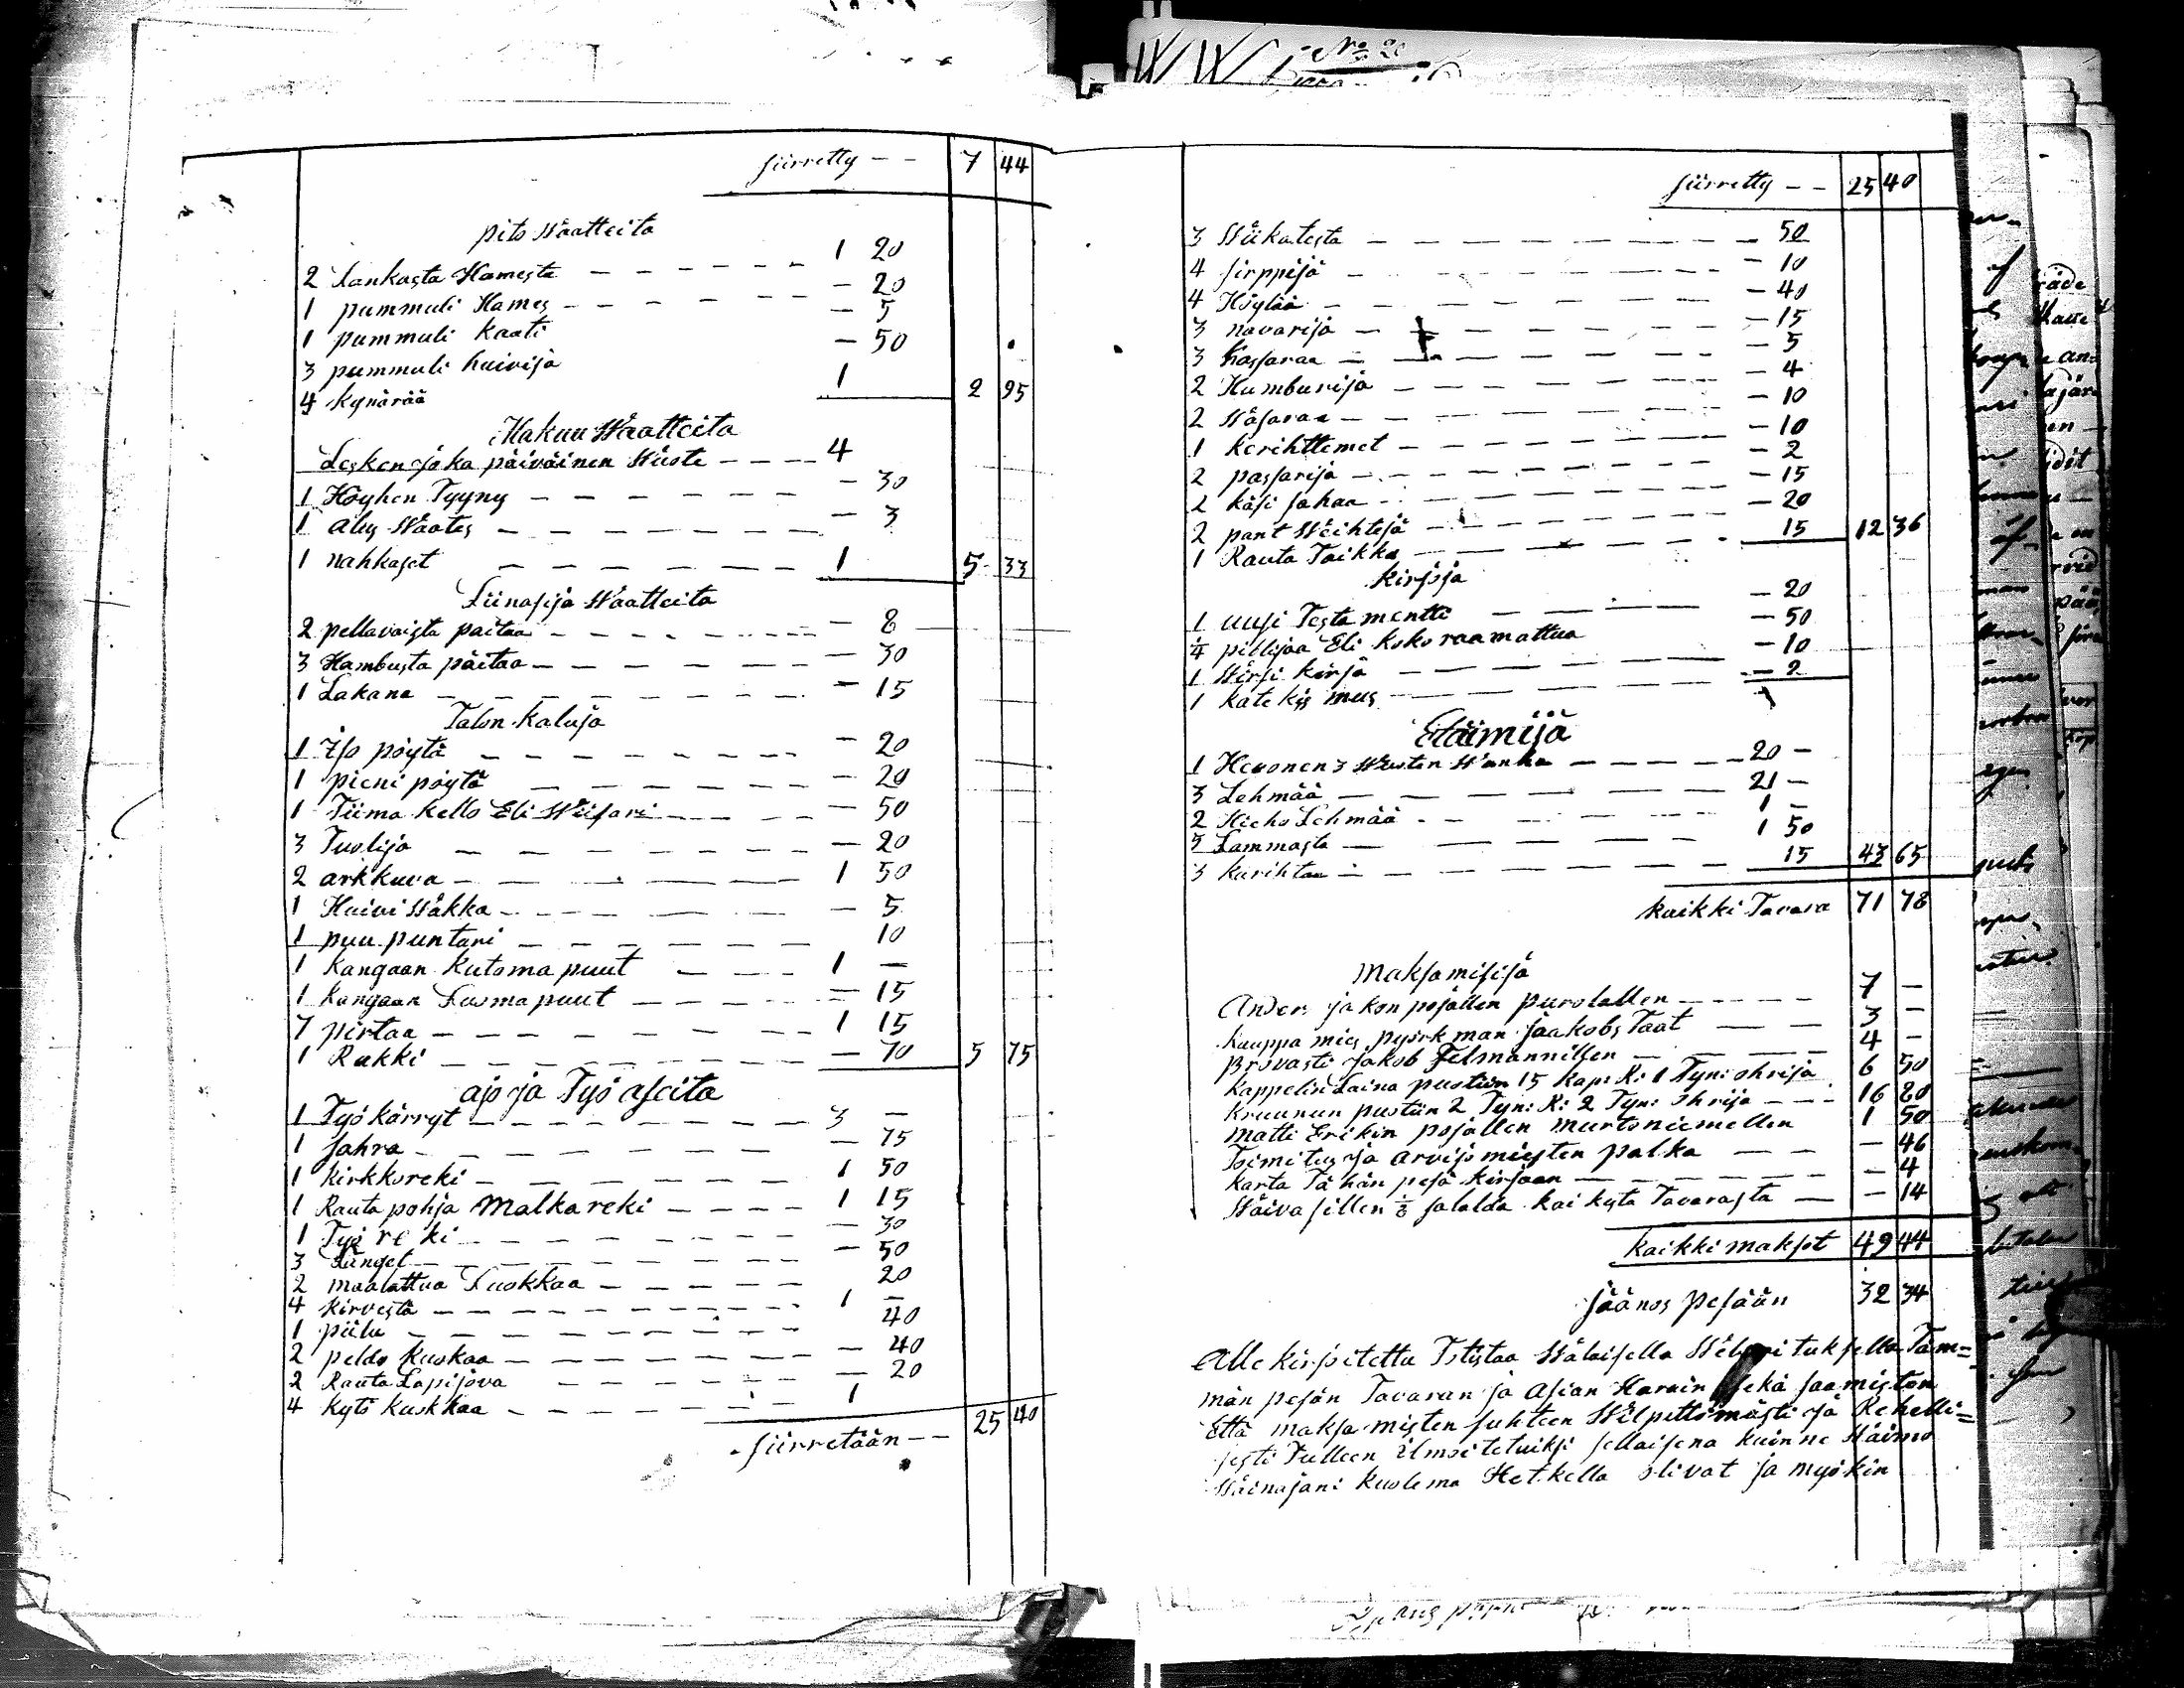 siirretty - - 7 44
pito Waatteita
2 Lankasta Hamesta - - - - - - 1 20
1 pummuli Hames - - - - - - 20
1 pummuli kaati - 5
3 pummuli huivija - 50
4 kynärää 1 2 95
Makuu Waatteita
Lesken joka päiväinen Wuote - - - - 4
1 Höyhen Tyyny - - - - - - - 30
1 alus Waates - - - - - - - 3
1 nahkaset - - - - - 1 5 33
Liinasija Waatteita
2 pellavaista paitaa - - - - - - - 8
3 Hambusta päitaa - - - - - - - 30
1 Lakana - - - - - - - - 15
Talon kaluja
1 Iso pöytä - - - - - - - 20
1 pieni pöytä - - - - - - - 20
1 Tiima kello Eli Wiisari - - - - - 50
3 Tuolija - - - - - - - - 20
2 arkkuva - - - - - - 1 50
1 Huivi Wakka - - - - - - - 5
1 puu puntari - - - - - - 10
1 Kangaan Kutoma puut - - - 1 -
1 Kangaan Luoma puut - - - - - 15
7 pirtaa - - - - - - - 1 15
1 Rukki - - - - - - - - 70 5 75
ajo ja Työ aseita
1 Työ kärryt - - - - - - - 3 -
1 sahra - - - - - - - - 75
1 Kirkkoreki - - - - - - - 1 50
1 Rauta pohja Malkareki - - - - 1 15
1 Työ re ki - - - - - - - - 30
3 Länget - - - - - - - - 50
2 maalattua Luokkaa - - - - 20
4 kirvestä - - - - - - - - 1 -
1 piilu - - - - - - - - 40
2 peldo kuokaa - - - - - - - - 40
2 Rauta Lapijova - - - - - - 20
4 kytö kuokkaa - - - - - - 1
siirretään - - 25 40
siirretty - - 25 40
3 Wiikatesta - - - - - - - - 50
4 sirppijä - - - - - - - - 10
4 Höylää - - - - - - - - 40
3 navarija - - - - - - - - 15
3 kassaraa - - - - - - - - 5
2 Humburija - - - - - - - - 4
2 Wasaraa - - - - - - - - 10
1 kerihttemet - - - - - - - - 10
2 passarija - - - - - - - - 2
2 käsi sahaa - - - - - - - - 15
2 pant Weihtejä - - - - - - - 20
1 Rauta Taikko - - - - - - 15 12 36
kirjoja
1 uusi Testa mentti - - - - 20
1/4 piblijaa Eli koko raamattua - 50
1 Wirsi kirja - - - - - - - 10
1 kate kis mus - - - - - - 2
Eläimijä
1 Hevonen 3 Wuoten Wanha - - - - - 20 -
3 Lehmää - - - - - - - 21 -
2 Hieho Lehmää - - - - - - 1 -
5 Lammasta - - - - - - - 1 50
3 karihtaa - - - - - - - 15 43 65
kaikki Tavara 71 78
Maksamisija
Anders jakon pojallen purolallen - - - - - 7 -
kauppa mies pyörkman Jaakobs Taat - - 3 -
Brovasti Jakob Felmannillen - - - - 4 -
Kappelin Laina puotiin 15 kap: R: 1 Tyn: ohrija 6 50
Kruunun puotiin 2 Tyn: R: 2 Tyn: ohrija - - - 16 80
matti Erikin pojallen murtoniemellen 1 50
Toimitus ja arvijo miesten palka - - - 46
karta Tä hän pesä kirjaan - - - - - - 4
Waiva sillen 1/8 salalda kai kista Tavarasta - - 14
kaikki maksot 49 44
Jäänos pesään 32 34
Alle kirjoitettu Totistaa Walaisella Welvoi tuksella Täm=
män pesän Tavaran ja Asian Haruin sekä saamisten
Että maksa misten suhteen Wilpittömästi ja Rehelli=
sesti Tulleen ilmoitetuiksi sellaisena kuin ne Waimo
Wainajani kuolema Hetkellä olivat ja myöskin